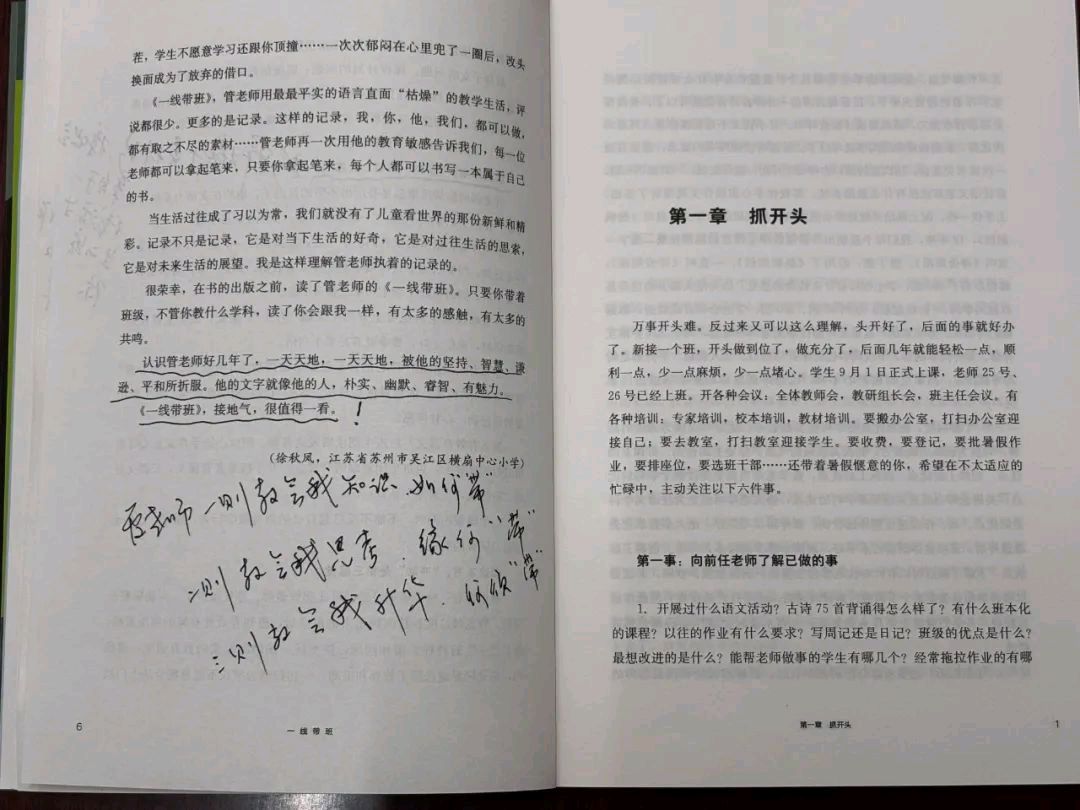 茬，学生不愿意学习还跟你顶撞……一次次郁闷在心里兜了一圈后，改头
换面成为了放弃的借口。
《一线带班》，管老师用最最平实的语言直面“枯燥”的教学生活，评
说都很少。更多的是记录。这样的记录，我，你，他，我们，都可以做，
都有取之不尽的素材……管老师再一次用他的教育敏感告诉我们，每一位
老师都可以拿起笔来，只要你拿起笔来，每个人都可以书写一本属于自己
的书。
当生活过往成了习以为常，我们就没有了儿童看世界的那份新鲜和精
彩。记录不只是记录，它是对当下生活的好奇，它是对过往生活的思索，
它是对未来生活的展望。我是这样理解管老师执着的记录的。
很荣幸，在书的出版之前，读了管老师的《一线带班》。只要你带着
班级，不管你教什么学科，读了你会跟我一样，有太多的感触，有太多的
共鸣。
认识管老师好几年了，一天天地，一天天地，被他的坚持、智慧、谦
逊、平和所折服。他的文字就像他的人，朴实、幽默、睿智、有魅力。
《一线带班》，接地气，很值得一看。！
（徐秋凤，江苏省苏州市吴江区横扇中心小学）
老师一则教会我知识 如何“带”
二则教会我思考 缘何“带”
三则教会我升华 “带”
6
一线带班
第一章 抓开头
万事开头难。反过来又可以这么理解，头开好了，后面的事就好办
了。新接一个班，开头做到位了，做充分了，后面几年就能轻松一点，顺
利一点，少一点麻烦，少一点堵心。学生9月1日正式上课，老师25号、
26号已经上班。开各种会议：全体教师会，教研组长会，班主任会议。有
各种培训：专家培训，校本培训，教材培训。要搬办公室，打扫办公室迎
接自己；要去教室，打扫教室迎接学生。要收费，要登记，要批暑假作
业，要排座位，要选班干部……还带着暑假惬意的你，希望在不太适应的
忙碌中，主动关注以下六件事。
第一事：向前任老师了解已做的事
1. 开展过什么语文活动？古诗75首背诵得怎么样了？有什么班本化
的课程？以往的作业有什么要求？写周记还是日记？班级的优点是什么？
最想改进的是什么？能帮老师做事的学生有哪几个？经常拖拉作业的有哪
第一章 抓开头
1